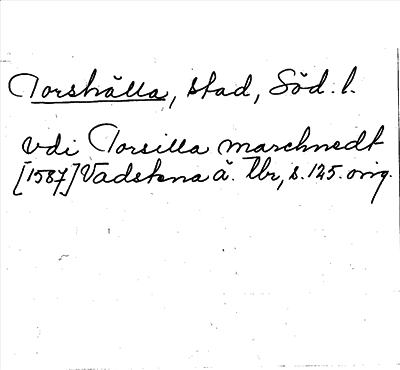 Torshälla, stad, Söd. l.
vdi Torsilla marchnedt
[1587] Vadstena ä. tbr, s. 125. orig.